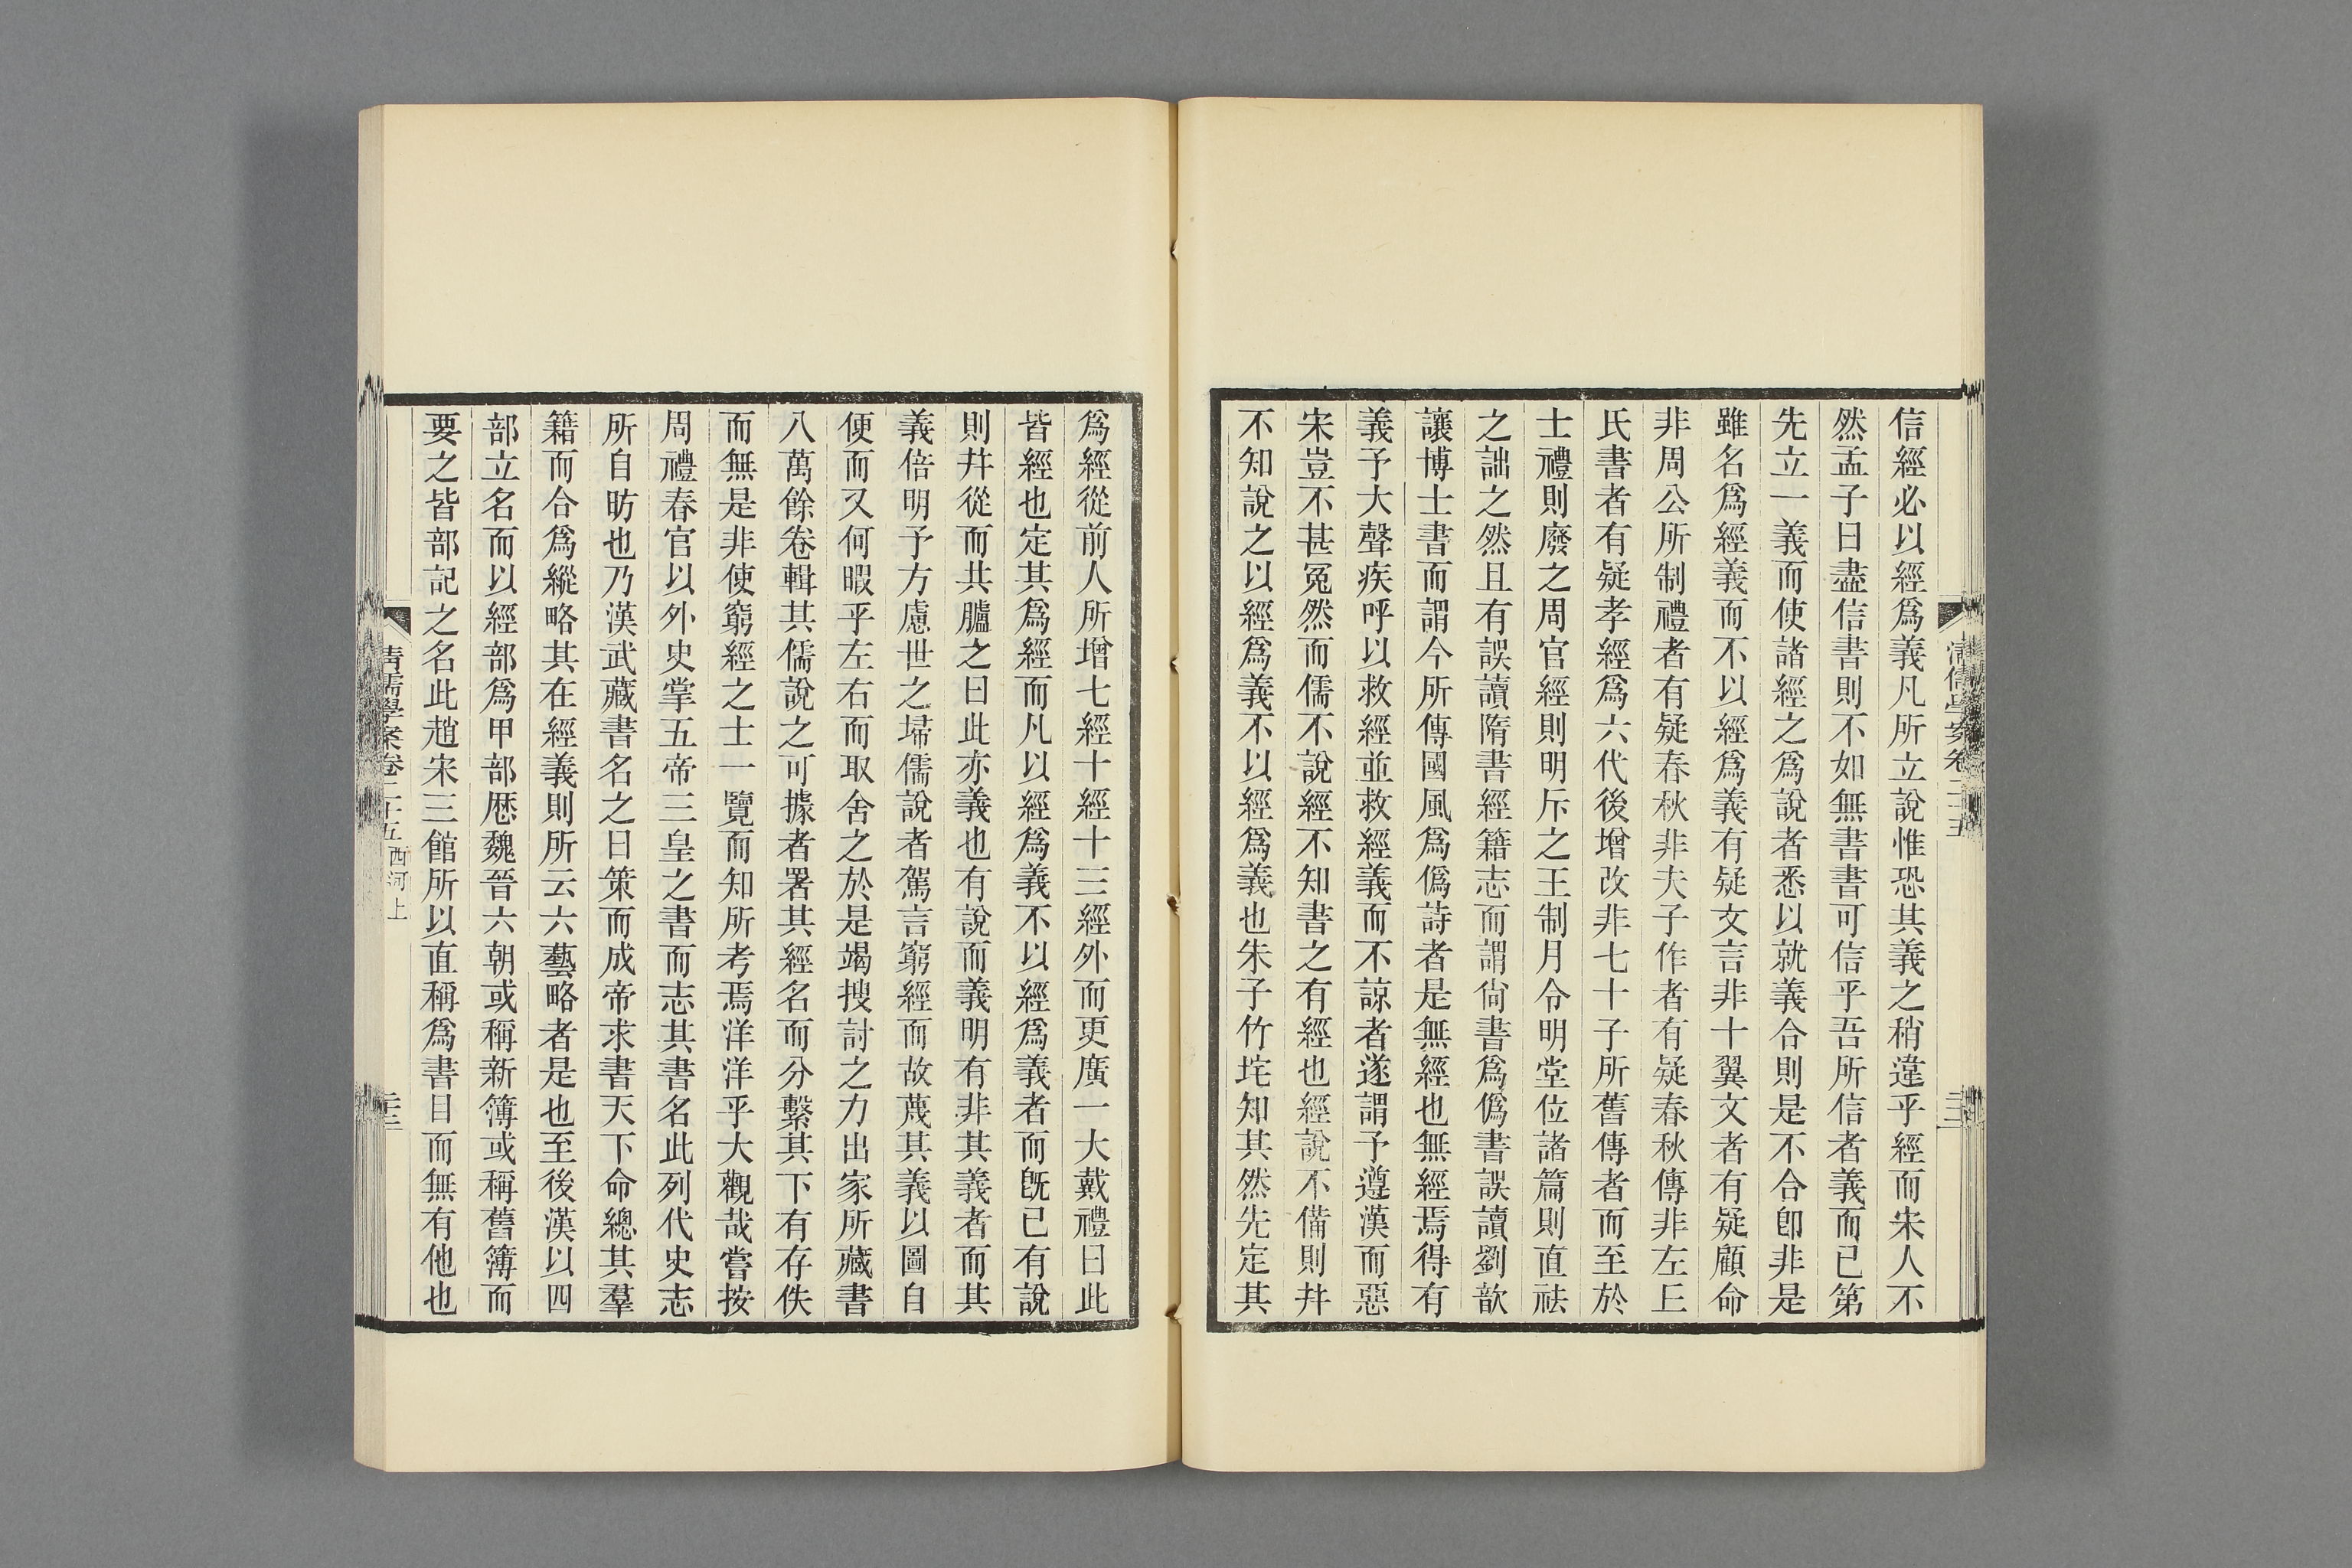 信經必以經爲義凡所立說惟恐其義之稍違乎經而宋人不
然孟子曰盡信書則不如無書書可信乎吾所信者義而已第
先立一義而使諸經之爲說者悉以就義合則是不合卽非是
雖名爲經義而不以經爲義有疑文言非十翼文者有疑顧命
非周公所制禮者有疑春秋非夫子作者有疑春秋傳非左丘
氏書者有疑孝經爲六代後增改非七十子所舊傳者而至於
士禮則廢之周官經則明斥之王制月令明堂位諸篇則直祛
之詘之然且有誤讀隋書經籍志而謂尙書爲僞書誤讀劉歆
讓博士書而謂今所傳國風爲僞詩者是無經也無經焉得有
義予大聲疾呼以救經並救經義而不諒者遂謂予遵漢而惡
宋豈不甚冤然而儒不說經不知書之有經也經說不備則幷
不知說之以經爲義不以經爲義也朱子竹垞知其然先定其
爲經從前人所增七經十經十三經外而更廣一大戴禮曰此
皆經也定其爲經而凡以經爲義不以經爲義者而旣已有說
則幷從而共臚之曰此亦義也有說而義明有非其義者而其
義倍明予方慮世之埽儒說者駕言窮經而故蔑其義以圖自
便而又何暇乎左右而取舍之於是竭搜討之力出家所藏書
八萬餘卷輯其儒說之可據者署其經名而分繫其下有存佚
而無是非使窮經之士一覽而知所考焉洋洋乎大觀哉嘗按
周禮春官以外史掌五帝三皇之書而志其書名此列代史志
所自昉也乃漢武藏書名之曰策而成帝求書天下命總其羣
籍而合爲縱略其在經義則所云六藝略者是也至後漢以四
部立名而以經部爲甲部歷魏晉六朝或稱新簿或稱舊簿而
要之皆部記之名此趙宋三館所以直稱爲書目而無有他也
清儒學案卷二十五 西河上